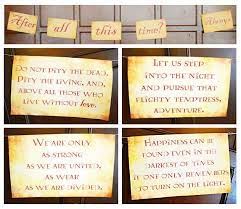 After all this time? Always
Do not pity the dead,
Pity the living, and,
above all those who
live without love.
Let us step
into the night
and pursue that
flighty temptress,
adventure.
We are only
as strong
as we are united,
as weak
as we are divided.
Happiness can be
found even in the
darkest of times
if one only remembers
to turn on the light.